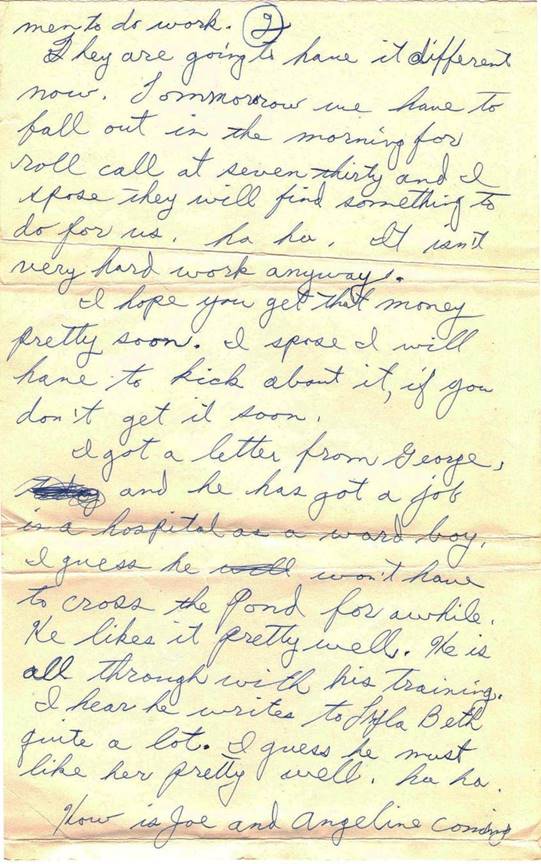 men to do work. 2
They are going to have it different
now. Tommorrow we have to
fall out in the morning for
roll call at seven thirty and I
spose they will find something to
do for us. ha ha. It isn't
very hard work anyway.
I hope you get that money
pretty soon. I spose I will
have to kick about it, if you
don't get it soon.
I got a letter from George,
and he has got a job
is a hospital as a ward boy.
I guess he will won't have
to cross the Pond for awhile.
He likes it pretty well. He is
all through with his training.
I hear he writes to Beth
quite a lot. I guess he must
like her pretty well. ha ha.
How is Joe and Angeline coming